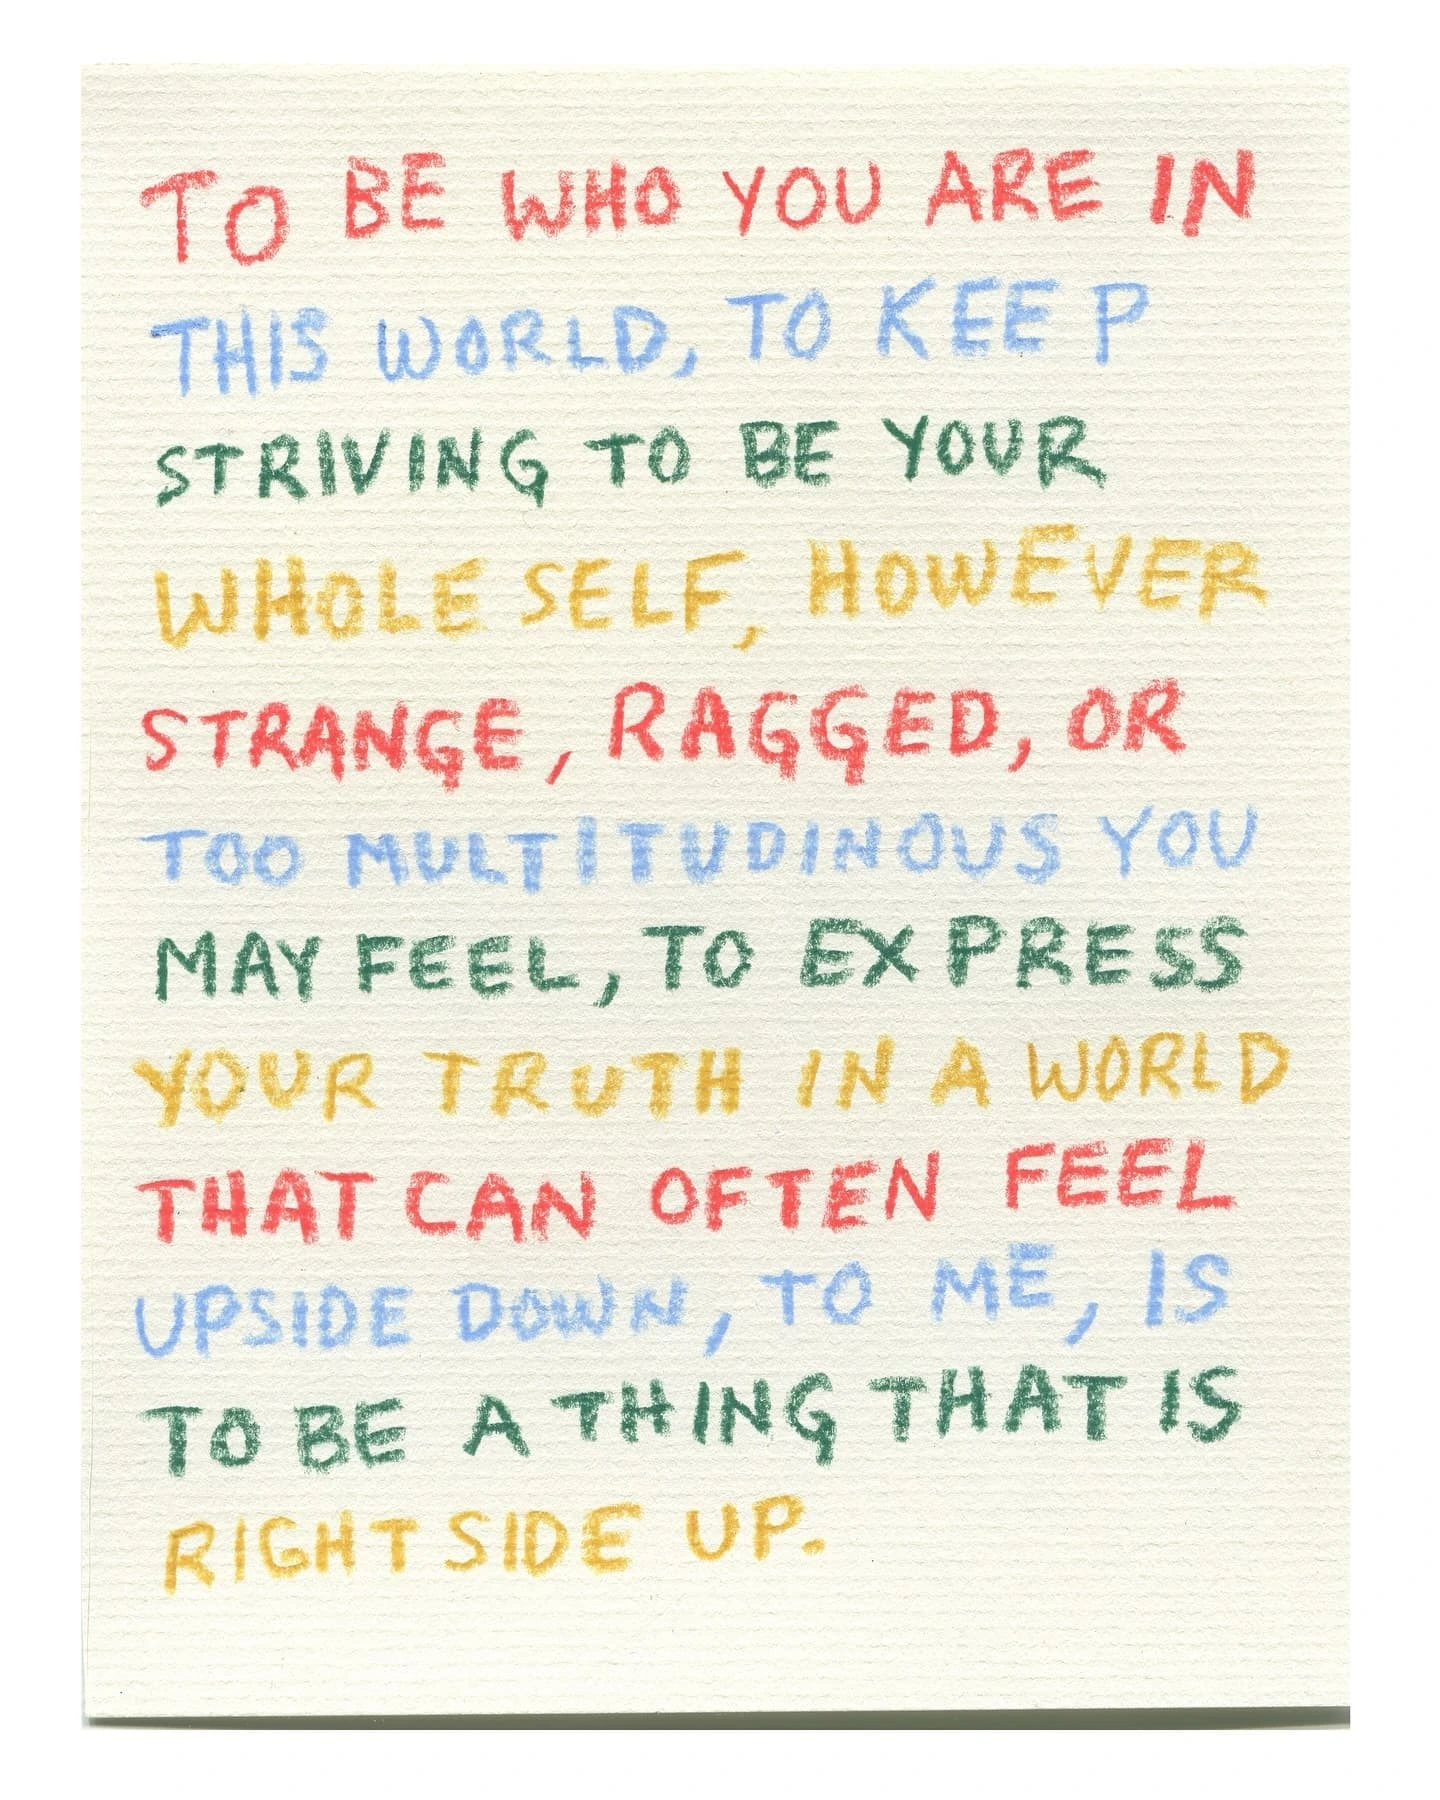 TO BE WHO YOU ARE IN
THIS WORLD, TO KEEP
STRIVING TO BE YOUR
WHOLE SELF, HOWEVER
STRANGE, RAGGED, OR
TOO MULTITUDINOUS YOU
MAY FEEL, TO EXPRESS
YOUR TRUTH IN A WORLD
THAT CAN OFTEN FEEL
UPSIDE DOWN, TO ME, IS
TO BE A THING THAT IS
RIGHT SIDE UP.